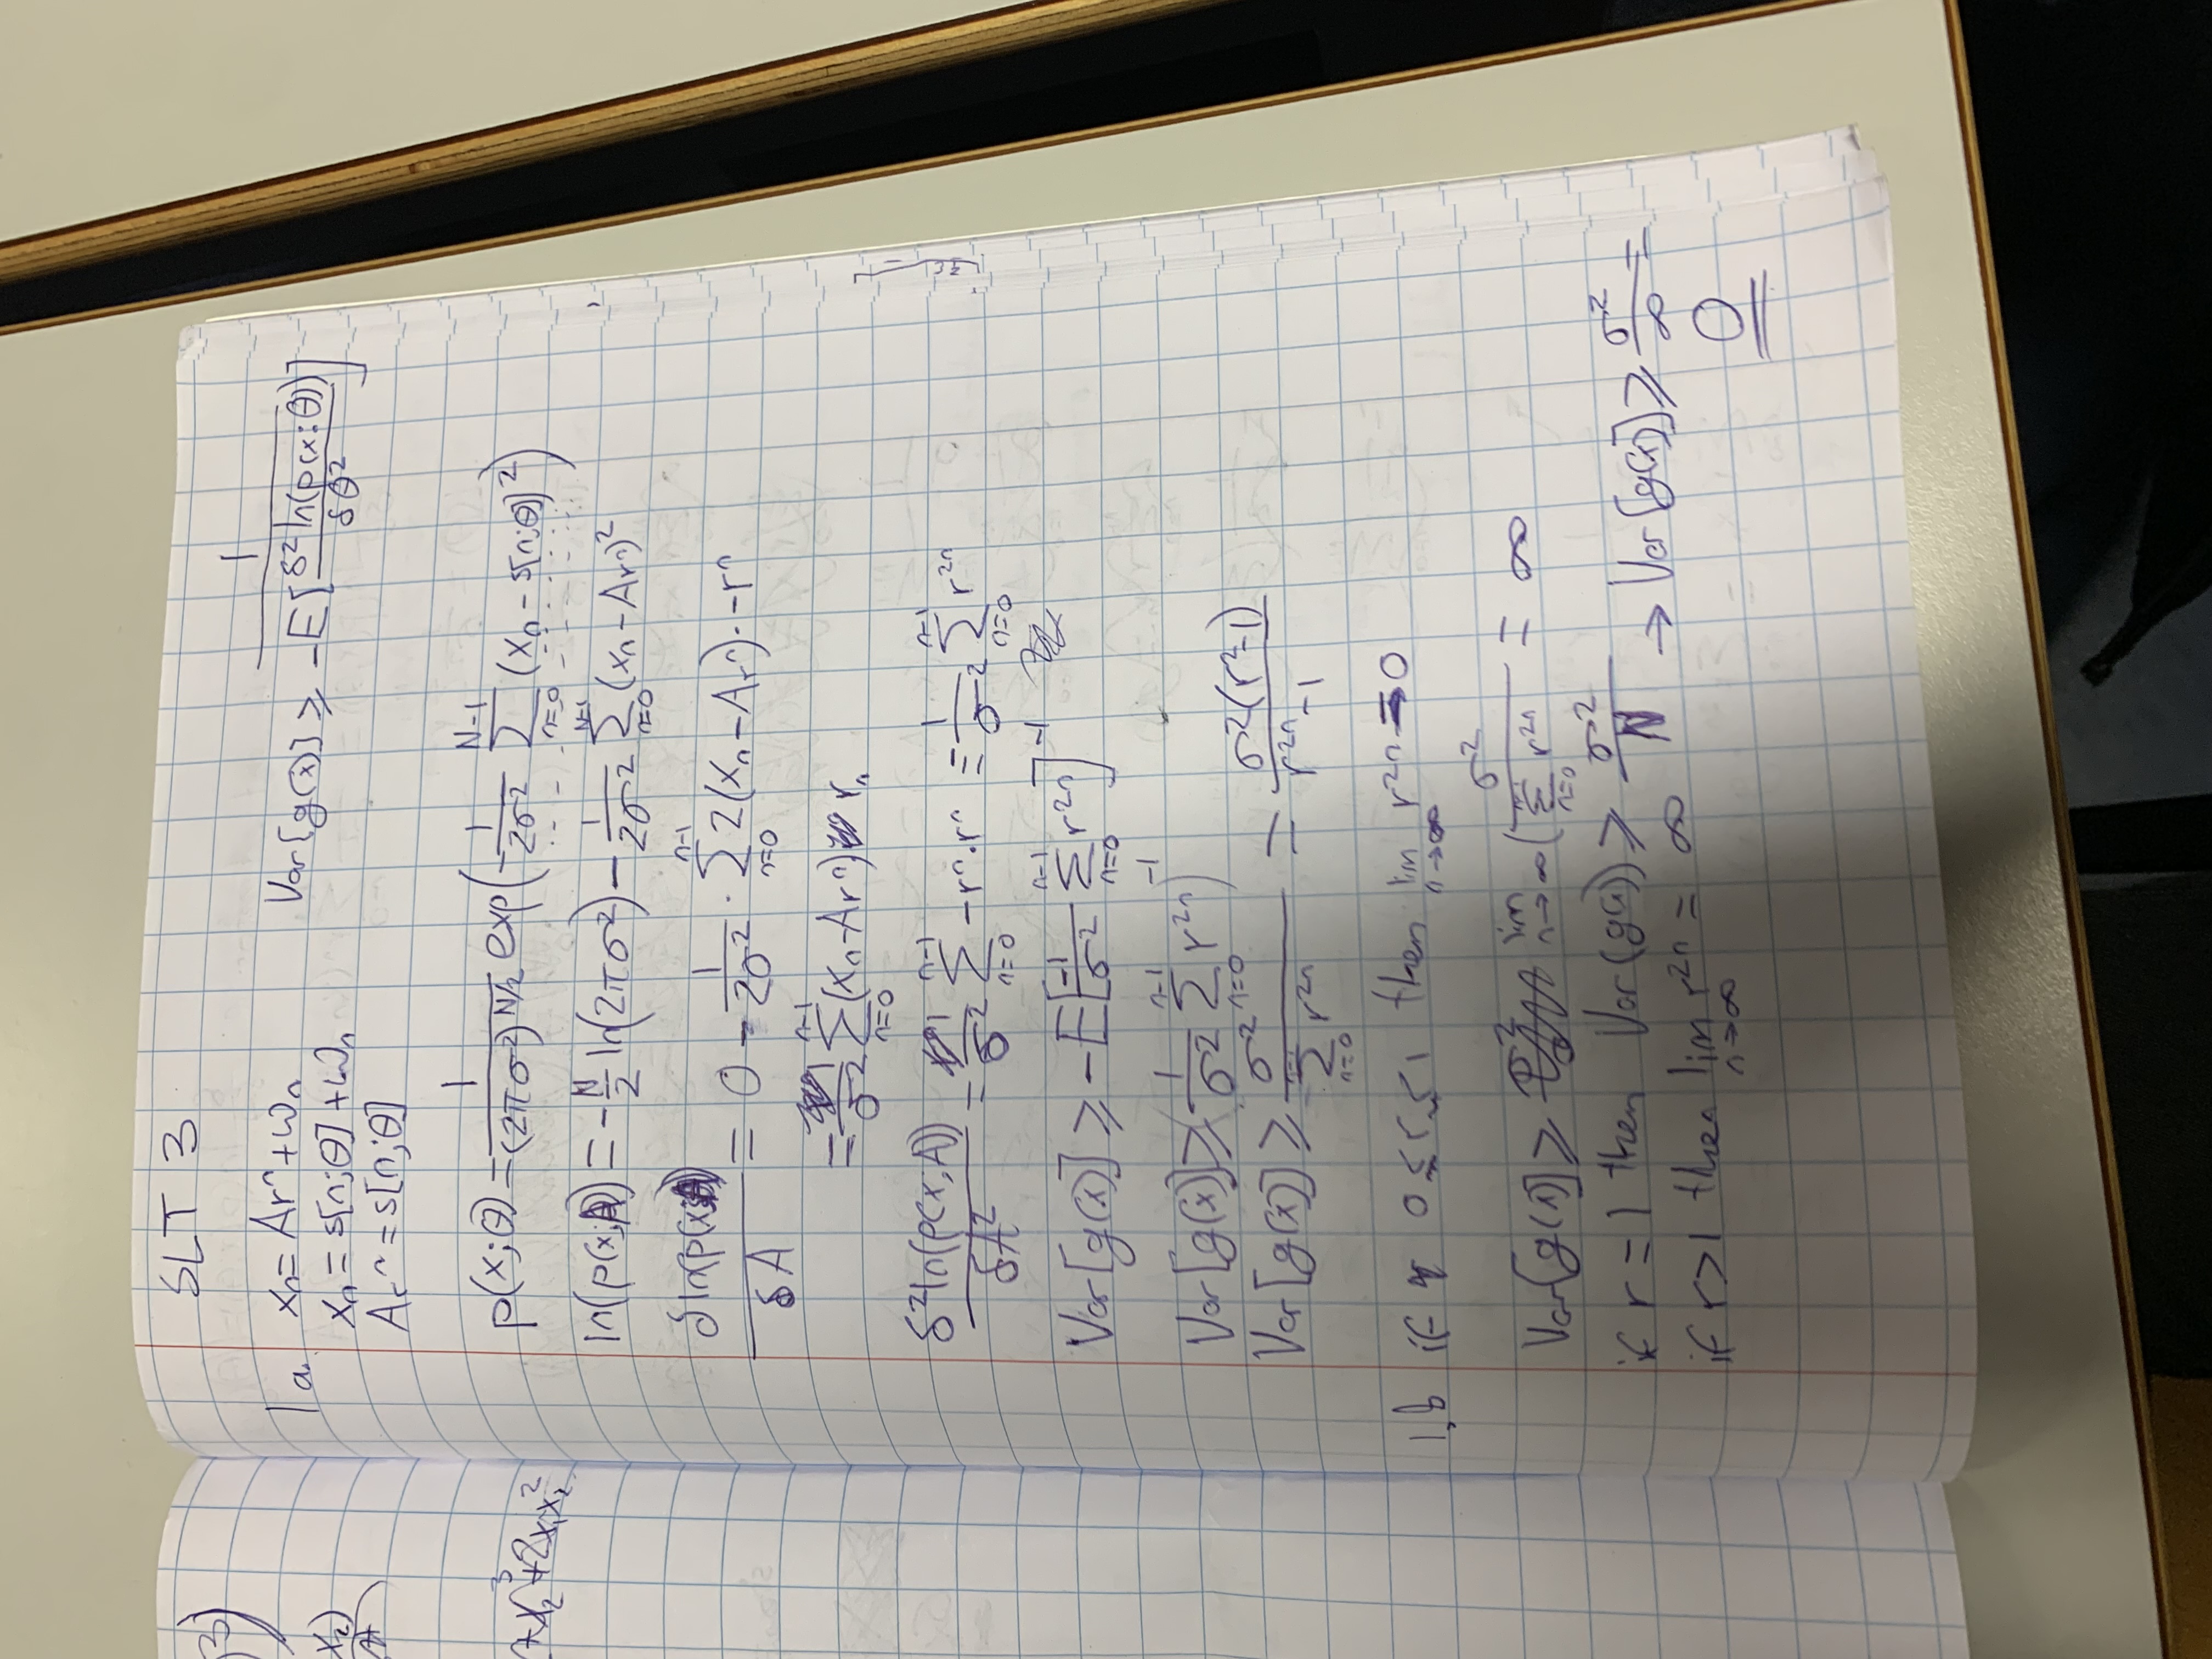 3)
x₂)
x₂³+2x₁x₂²
SLT 3
1a. xₙ = Arⁿ + ωₙ
Var[g(x)] ≥ 1 / -E[δ² ln(p(x;θ)) / δθ²]
xₙ = s[n;θ] + ωₙ
Arⁿ = s[n;θ]
p(x;θ) = 1/(2πσ²)^(N/2) exp(-1/(2σ²) Σ_{n=0}^{N-1} (xₙ - s[n;θ])²)
ln(p(x;A)) = -N/2 ln(2πσ²) - 1/(2σ²) Σ_{n=0}^{N-1} (xₙ - Arⁿ)²
δ ln p(x;A) / δA = 0 - 1/(2σ²) · Σ_{n=0}^{n-1} 2(xₙ - Arⁿ) · -rⁿ
= 1/σ² Σ_{n=0}^{n-1} (xₙ - Arⁿ) rₙ
δ² ln(p(x;A)) / δA² = 1/σ² Σ_{n=0}^{n-1} -rⁿ·rⁿ = 1/σ² Σ_{n=0}^{n-1} r²ⁿ
Var[g(x)] ≥ -E[-1/σ² Σ_{n=0}^{n-1} r²ⁿ]⁻¹
Var[g(x)] ≥ (1/σ² Σ_{n=0}^{n-1} r²ⁿ)⁻¹
Var[g(x)] ≥ σ² / Σ_{n=0}^{n-1} r²ⁿ = σ²(r²-1) / (r²ⁿ - 1)
1,b if 0 ≤ r ≤ 1 then lim_{n→∞} r²ⁿ = 0
Var[g(x)] ≥ lim_{n→∞} (σ² / Σ_{n=0}^{n-1} r²ⁿ = ∞
if r = 1 then Var(g(x)) ≥ σ²/N → Var[g(x)] ≥ σ²/∞ =
if r > 1 then lim_{n→∞} r²ⁿ = ∞
0